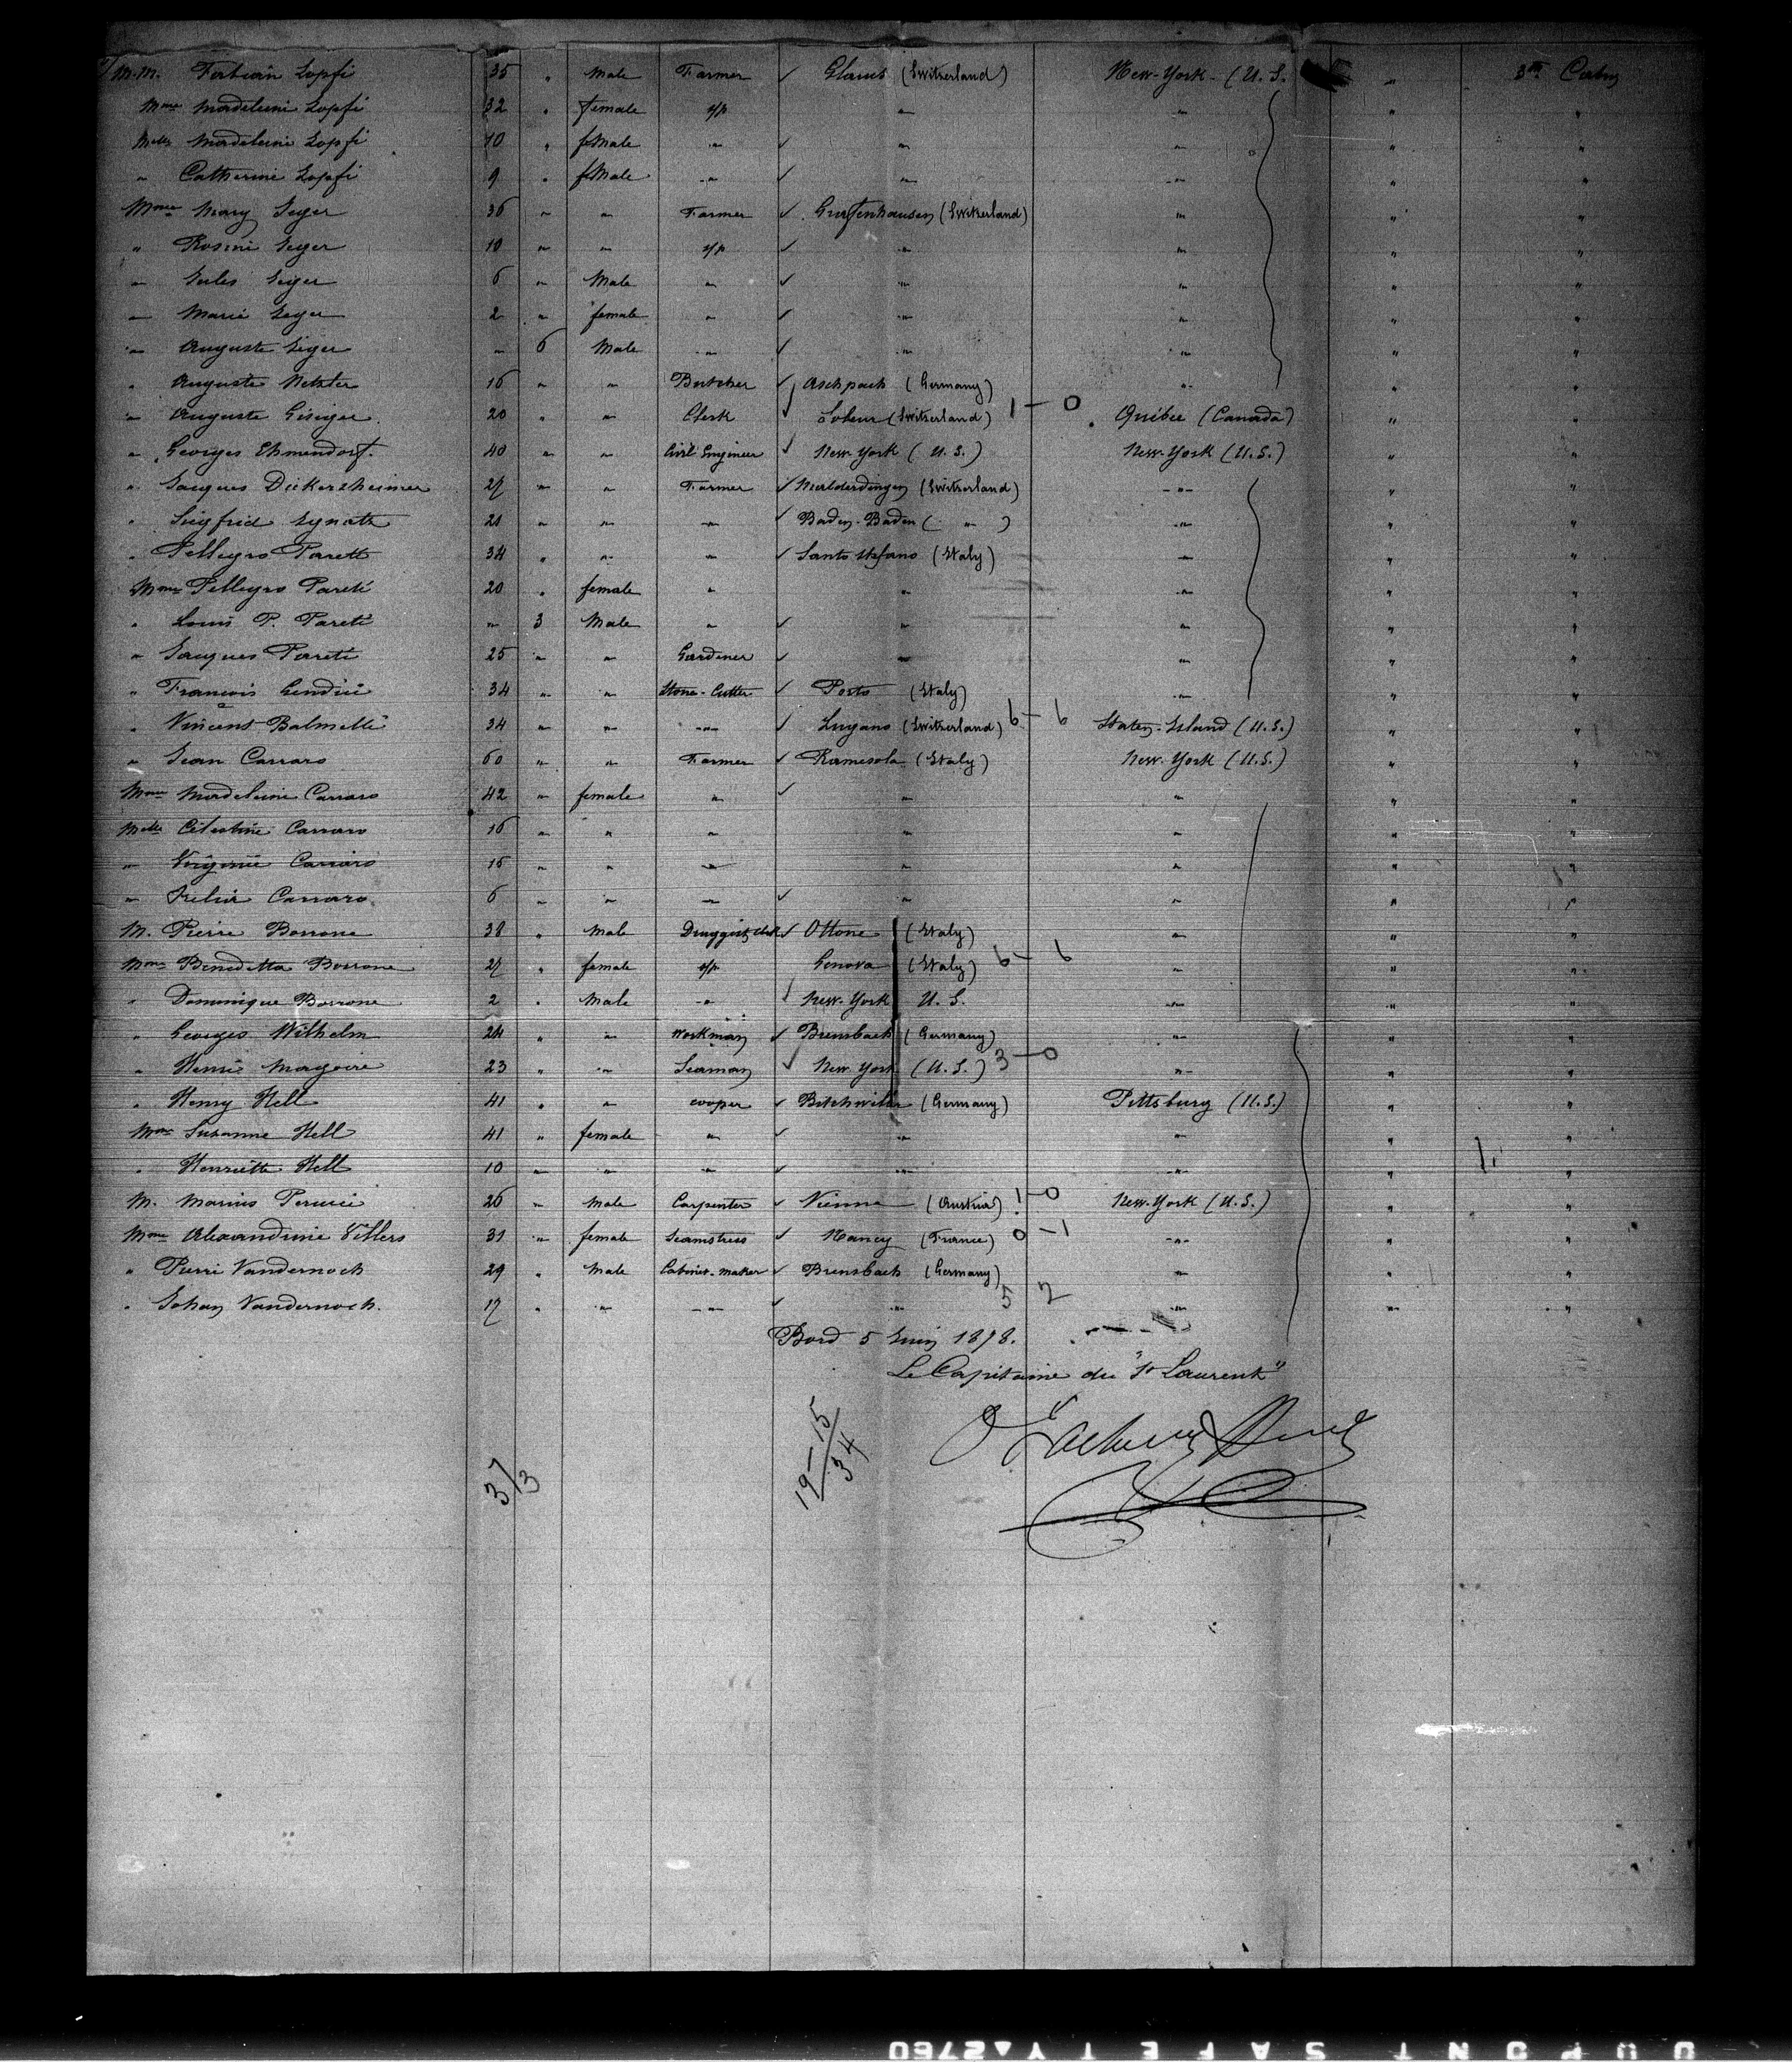 M.M. Fabian Lopfi 35 " Male Farmer ✓ Glarus (Switzerland) New-York (U.S. " 3rd Cabin
Mme Madeleine Lopfi 32 " female s/p " " " "
Melle Madeleine Lopfi 10 " female " ✓ " " " "
" Catherine Lopfi 9 " female " ✓ " " " "
Mme Mary Geger 36 " " Farmer ✓ (Switzerland) " " "
" Rosine Geger 10 " " s/p ✓ " " " "
" Jules Geger 6 " Male " ✓ " " " "
" Marie Geger 2 " female " ✓ " " " "
" Auguste Geger " 6 Male " ✓ " " " "
" Auguste 16 " " Butcher ✓ Aschpach (Germany) " " "
" Auguste Gisiger 20 " " Clerk ✓ Soleur (Switzerland) 1 - 0 Québec (Canada) " "
" Georges Ehmendorf 40 " " Civil Engineer ✓ New-York (U.S.) New-York (U.S.) " "
" Jacques Dickerzheimer 27 " " Farmer ✓ (Switzerland) " " "
" Siegfried 21 " " " ✓ Baden-Baden ( " ) " " "
" Pellegro Pareti 34 " " " ✓ Santo Stefano (Italy) " " "
Mme Pellegro Pareti 20 " female " " " " "
" Louis P. Pareti " 3 Male " ✓ " " " "
" Jacques Pareti 25 " " Gardener ✓ " " " "
" Francois 34 " " Stone-Cutter ✓ Porto (Italy) " " "
" Vincent Balmelli 34 " " " ✓ Lugano (Switzerland) 6 - 6 Staten-Island (U.S.) " "
" Jean Carraro 60 " " Farmer ✓ Ramesola (Italy) New-York (U.S.) " "
Mme Madeleine Carraro 42 " female " ✓ " " " "
Melle Célestine Carraro 16 " " " " " " "
" Virginie Carraro 15 " " " " " " "
" Carraro 6 " " " ✓ " " " "
M. Pierre Borrone 38 " Male Druggist Clerk ✓ Ottone (Italy) " " "
Mme Benedetta Borrone 27 " female s/p Genova (Italy) 6 - 6 " " "
" Dominique Borrone 2 " Male " ✓ New-York U.S. " " "
" Georges Wilhelm 24 " " Workman ✓ Brensbach (Germany) " " "
" Henri Magoire 23 " " Seaman ✓ New York (U.S.) 3 - 0 " " "
" Henry Hell 41 " " cooper ✓ Bitchwiller (Germany) Pittsburg (U.S.) " "
Mme Suzanne Hell 41 " female " ✓ " " " "
" Henriette Hell 10 " " " ✓ " " " "
M. Marius 26 " Male Carpenter ✓ Vienna (Austria) 1 - 0 New-York (U.S.) " "
Mme Alexandrine Villers 31 " female Seamstress ✓ Nancy (France) 0 - 1 " " "
" Pierre Vandernoch 29 " Male Cabinet-maker ✓ Brensbach (Germany) " " "
" Johan Vandernoch. 17 " " " ✓ " 5 2 " " "
Bord 5 Juin 1878.
Le Capitaine du "St Laurent"
37/3
19-15
34
DUPONT SAFETY 2760